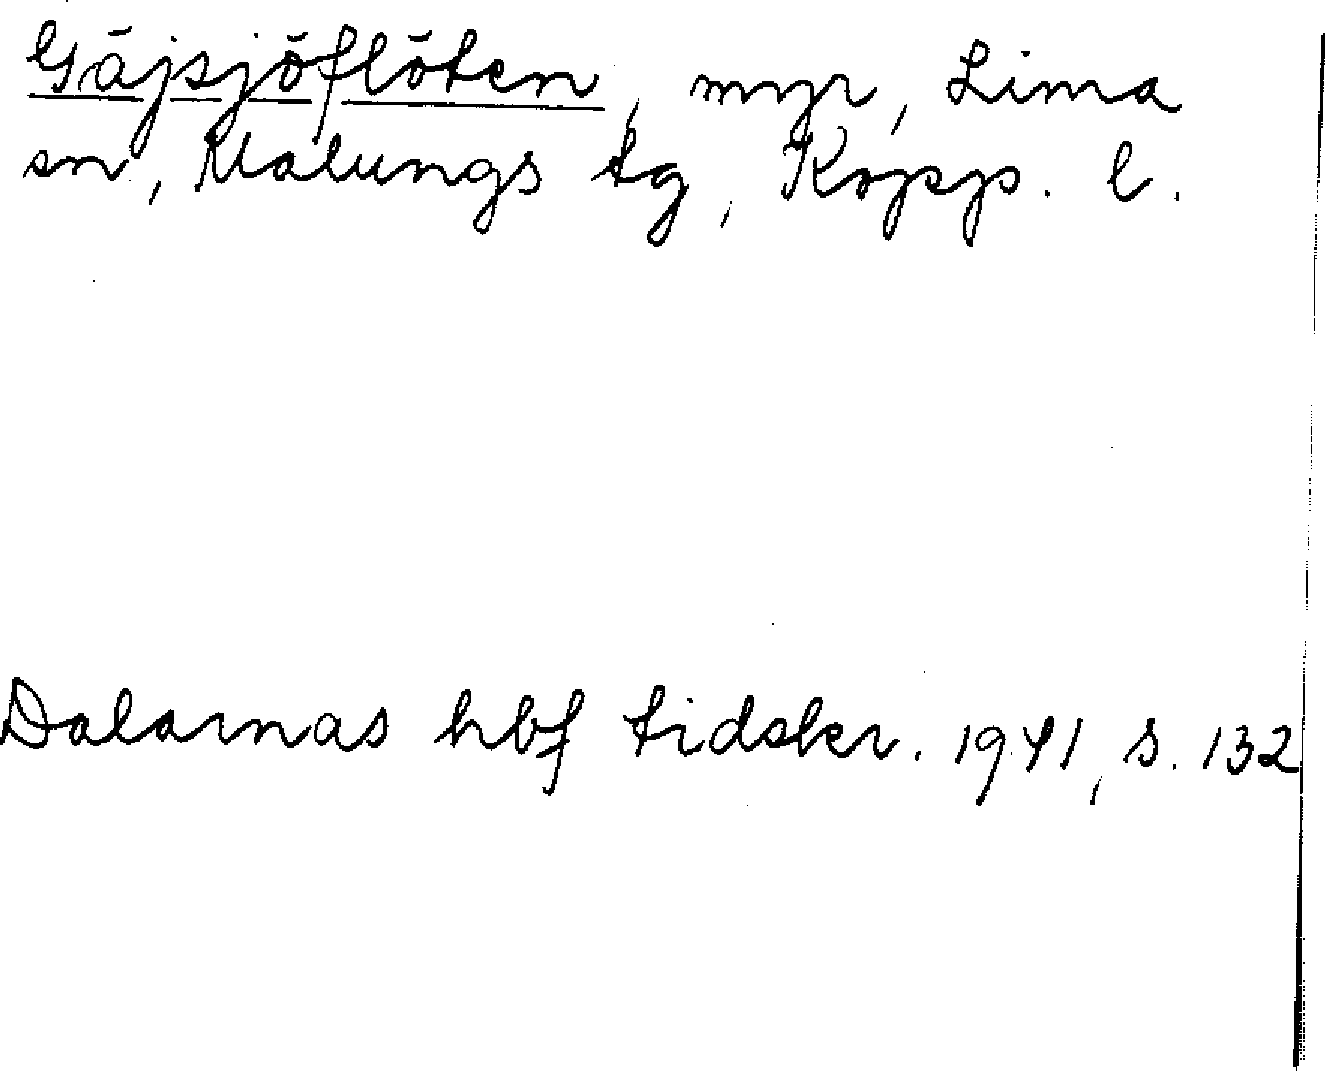 Gäjsjöflöten, myr, Lima
sn, Malungs tg, Kopp. l.
Dalarnas hbf tidskr. 1941, s. 132